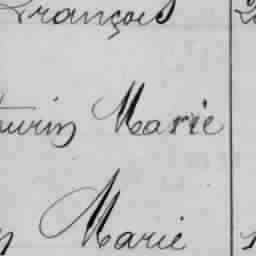 François
urin Marie
Marie